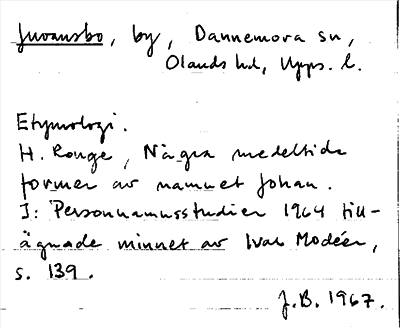 Juvansbo, by, Dannemora sn,
Olands hd, Upps. l.
Etymologi.
H. Ronge, Några medeltida
former av namnet Johan.
I: Personnamnsstudier 1964 till-
ägnade minnet av Ivar Modéer,
s. 139.
J.B. 1967.